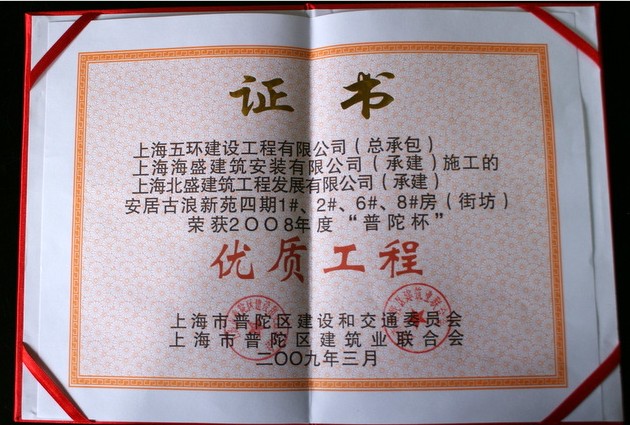 证书
上海五环建设工程有限公司（总承包）
上海海盛建筑安装有限公司（承建）施工的
上海北盛建筑工程发展有限公司（承建）
安居古浪新苑四期1#、2#、6#、8#房（街坊）
荣获2008年度“普陀杯”
优质工程
上海市普陀区建设和交通委员会
上海市普陀区建筑业联合会
二〇〇九年三月